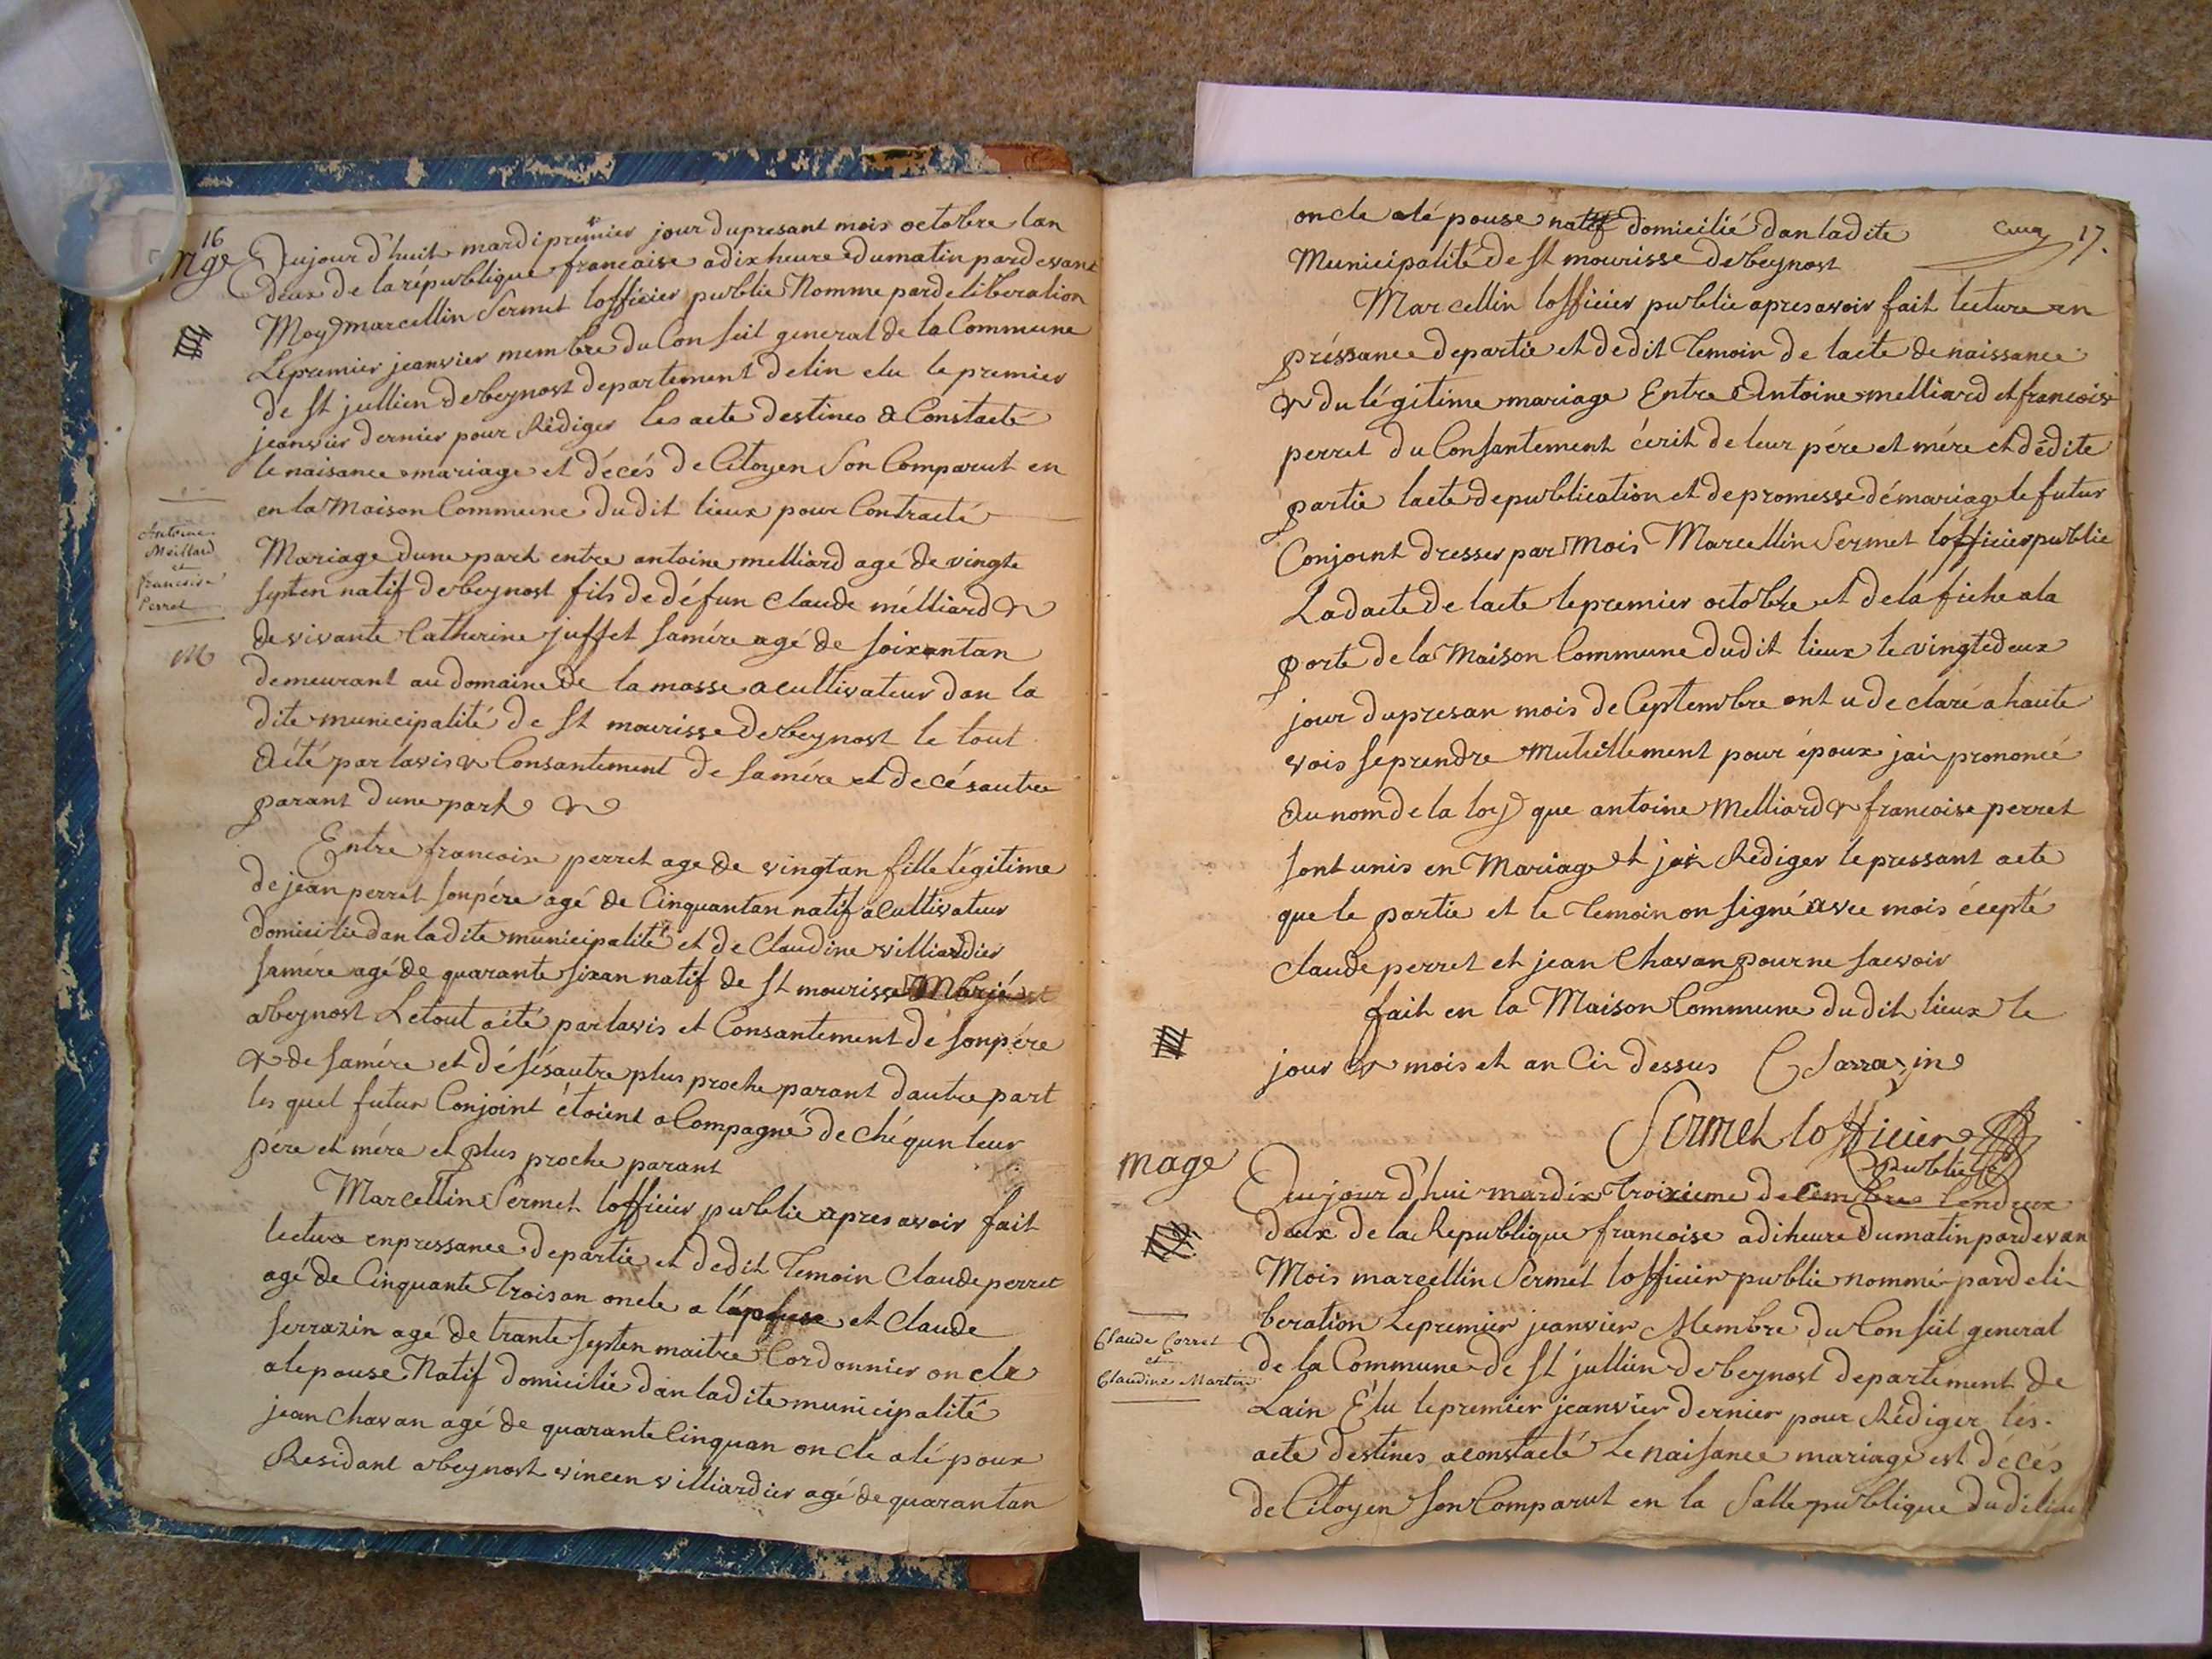 16
mge
Aujour d'huit mardi premier jour dupresant mois octobre lan
deux de larépublique francaise adix heure dumatin pardevant
Moy marcellin Sermet lofficier publie Nomme pardeliberation
Lepremier jeanvier membre du Conseil general de la Commune
de St jullien debeynost departement delin elu le premier
jeanvier dernier pour Rédiger les acte destines a Constacté
le naisance mariage et décés de Citoyen Son Comparut en
en la Maison Commune du dit lieux pour Contracté
Antoine
Meillard
et
francoise
Perret
M
Mariage dune part entre antoine melliard agé de vingte
septen natif debeynost fils dedéfun Claude mélliard &
de vivante Catherine juffet samére agé de soixantan
demeurant au domaine de la masse acultivateur dan la
dite municipalité de St mourisse debeynost le tout
aété par lavis & Consantement de samére et de césautre
parant dune part &
Entre francoise perret age de vingtan fille légitime
de jean perret sonpére agé de Cinquantan natif acultivateur
domicilie dan ladite municipalité et de Claudine villiardier
samére agé de quarante sixan natif de St mourisse
abeynost Letout aété parlavis et Consantement dé sonpére
& de samére et dé sésautre plus proche parant dautre part
les quel futur Conjoint étoient acompagné de chéqun leur
pére et mére et plus proche parant
Marcellin Sermet lofficier publie apres avoir fait
lecture enpressance departie et dedit Temoin Claude perret
agé de Cinquante Troisan oncle a lépouse et Claude
serrazin agé de trante septen maitre Cordonnier oncle
alepouse Natif domicilié dan ladite municipalité
jean Chavan agé de quarante Cinquan oncle alépoux
Residant abeynost vincen villiardier agé de quarantan
17.
oncle alépouse natif domicilié dan ladite
Municipalité de St mourisse debeynost
Marcellin lofficier publie apres avoir fait lecture en
préssance departie et dedit Temoin de lacte de naissance
& du légitime mariage Entre Antoine melliard et francoise
perret du Consantement écrit de leur pére et mére et dédite
partie lacte depublication et depromesse démariage le futur
Conjoint dresser par Mois Marcellin Sermet lofficier publie
Ladacte de lacte lepremier octobre et dela fiche ala
porte de la Maison Commune dudit lieux le vingtedeux
jour dupresan mois de Ceptembre ont u declaré a haute
vois seprendre Mutuellement pour époux jai prononcé
Au nom de la loy que antoine Melliard & francoise perret
sont unis en Mariage et jai Rédiger lepressant acte
que le partie et le Temoin on signé avec mois écepté
claude perret et jean Chavan pour ne saevoir
fait en la Maison Commune dudit lieux le
jour & mois et an Ci dessus C Sarrazin
Sermet lofficier
publie
mage
Aujour d'hui mardix troixieme decembre
deux de la Republique francoise adiheure dumatin pardevan
Mois marcellin Sermet lofficier publie nommé pardeli
beration Lepremier jeanvier Membre du Conseil general
Claude Corret
et
Claudine Martin
de la Commune de St jullien debeynost departement de
Lain Élu lepremier jeanvier dernier pour Rédiger lés
acte destines aconstacté Le naisance mariage est décés
de Citoyen son Comparut en la Salle publique du dilieu